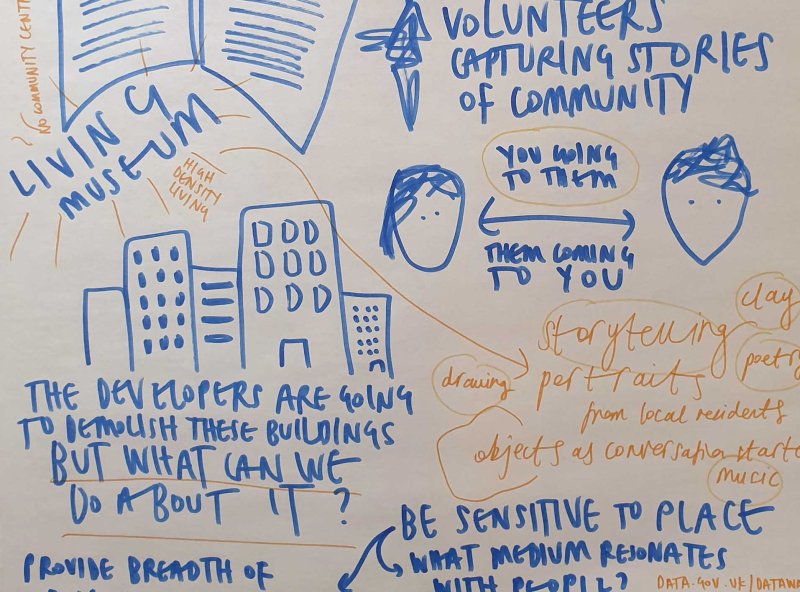 NO COMMUNITY
LIVING
MUSEUM
HIGH
DENSITY
LIVING
VOLUNTEERS
CAPTURING STORIES
OF COMMUNITY
YOU GOING
TO THEM
THEM COMING
TO YOU
clay
storytelling
poetry
drawing
portraits
from local residents
objects as conversation
music
THE DEVELOPERS ARE GOING
TO DEMOLISH THESE BUILDINGS
BUT WHAT CAN WE
DO ABOUT IT?
BE SENSITIVE TO PLACE
WHAT MEDIUM RESONATES
WITH PEOPLE?
PROVIDE BREADTH OF
DATA.GOV.UK/